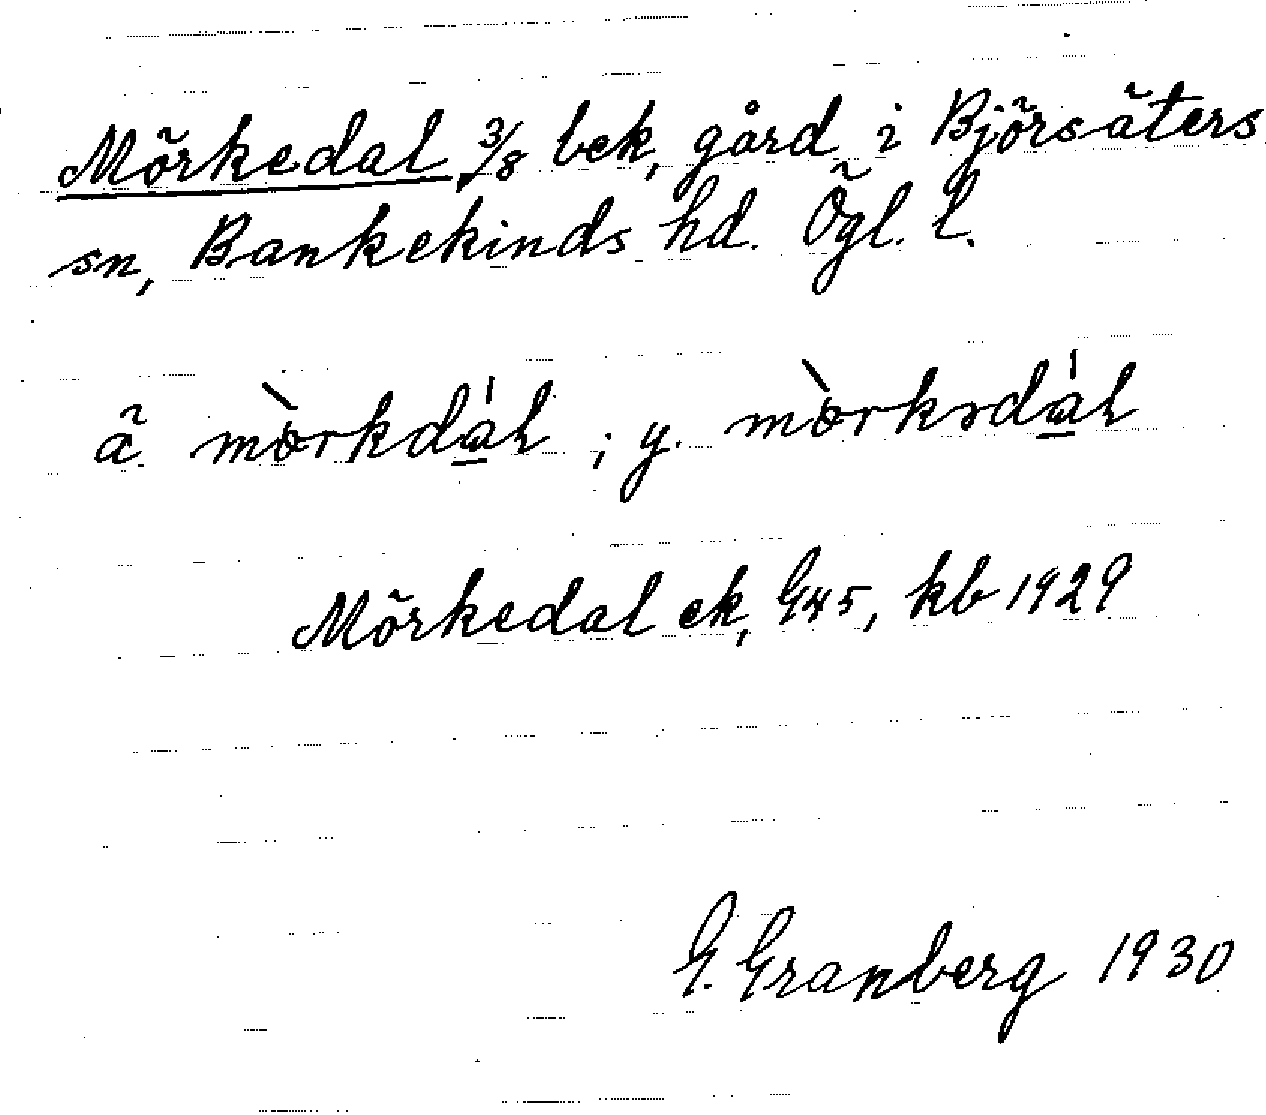 Mörkedal 3/8 bek, gård i Björsäters
sn, Bankekinds hd. Ögl. l.
ä. mòrkdál ; y. mòrkədál
Mörkedal ek, G45, kb 1929
G. Granberg 1930